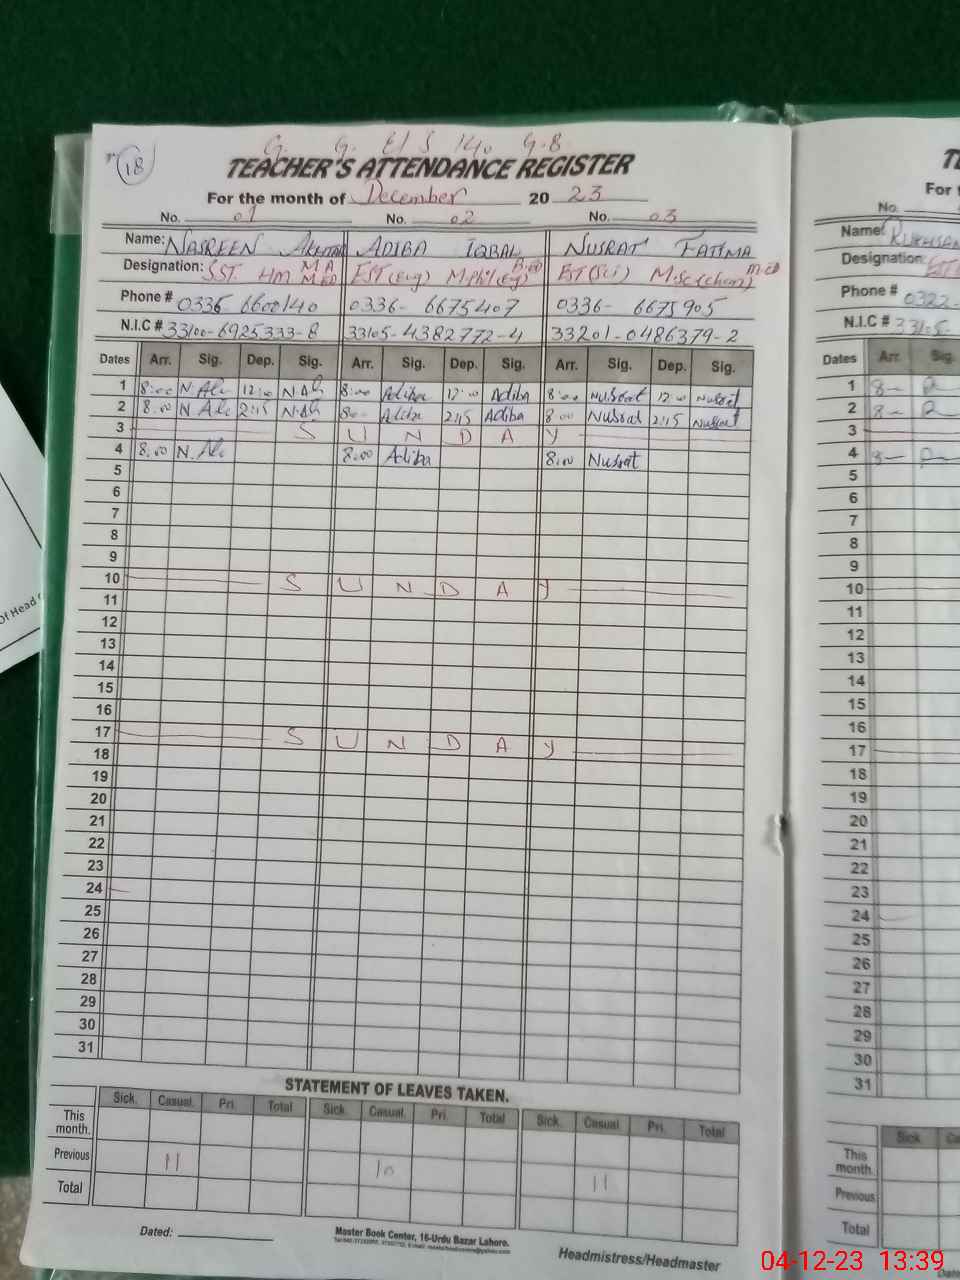 18
G. G. El S 140 G.B
TEACHER'S ATTENDANCE REGISTER
For the month of December 20 23
No. 01 No. 02 No. 03
Name: NASREEN AKHTAR ADIBA IQBAL NUSRAT FATIMA
Designation: SST HM M A M.Ed EST (Eng) M.Phil (Eng) B.ED EST (Sci) M.Sc (chem) M.ED
Phone # 0336 6600140 0336- 6675407 0336- 6675905
N.I.C # 33100-6925333-8 33105-4382772-4 33201-0486379-2
Dates Arr. Sig. Dep. Sig. Arr. Sig. Dep. Sig. Arr. Sig. Dep. Sig.
1 8:00 12:00 8:00 Adiba 12:00 Adiba 8:00 Nusrat 12:00 Nusrat
2 8.00 2:15 8:00 Adiba 2:15 Adiba 8:00 Nusrat 2:15 Nusrat
3 S U N D A Y
4 8.00 8.00 Adiba 8.00 Nusrat
5
6
7
8
9
10 S U N D A Y
11
12
13
14
15
16
17 S U N D A Y
18
19
20
21
22
23
24
25
26
27
28
29
30
31
STATEMENT OF LEAVES TAKEN.
Sick. Casual. Pri. Total Sick. Casual. Pri. Total Sick. Casual Pri. Total
This month.
Previous 11 10 11
Total
Dated:
Master Book Center, 16-Urdu Bazar Lahore.
Headmistress/Headmaster
For
No
Name:
Designation:
Phone # 0322-
N.I.C # 33105-
Dates Arr. Sig.
1 8-
2 8-
3
4 8-
5
6
7
8
9
10
11
12
13
14
15
16
17
18
19
20
21
22
23
24
25
26
27
28
29
30
31
Sick
This month.
Previous
Total
Of Head
04-12-23 13:39